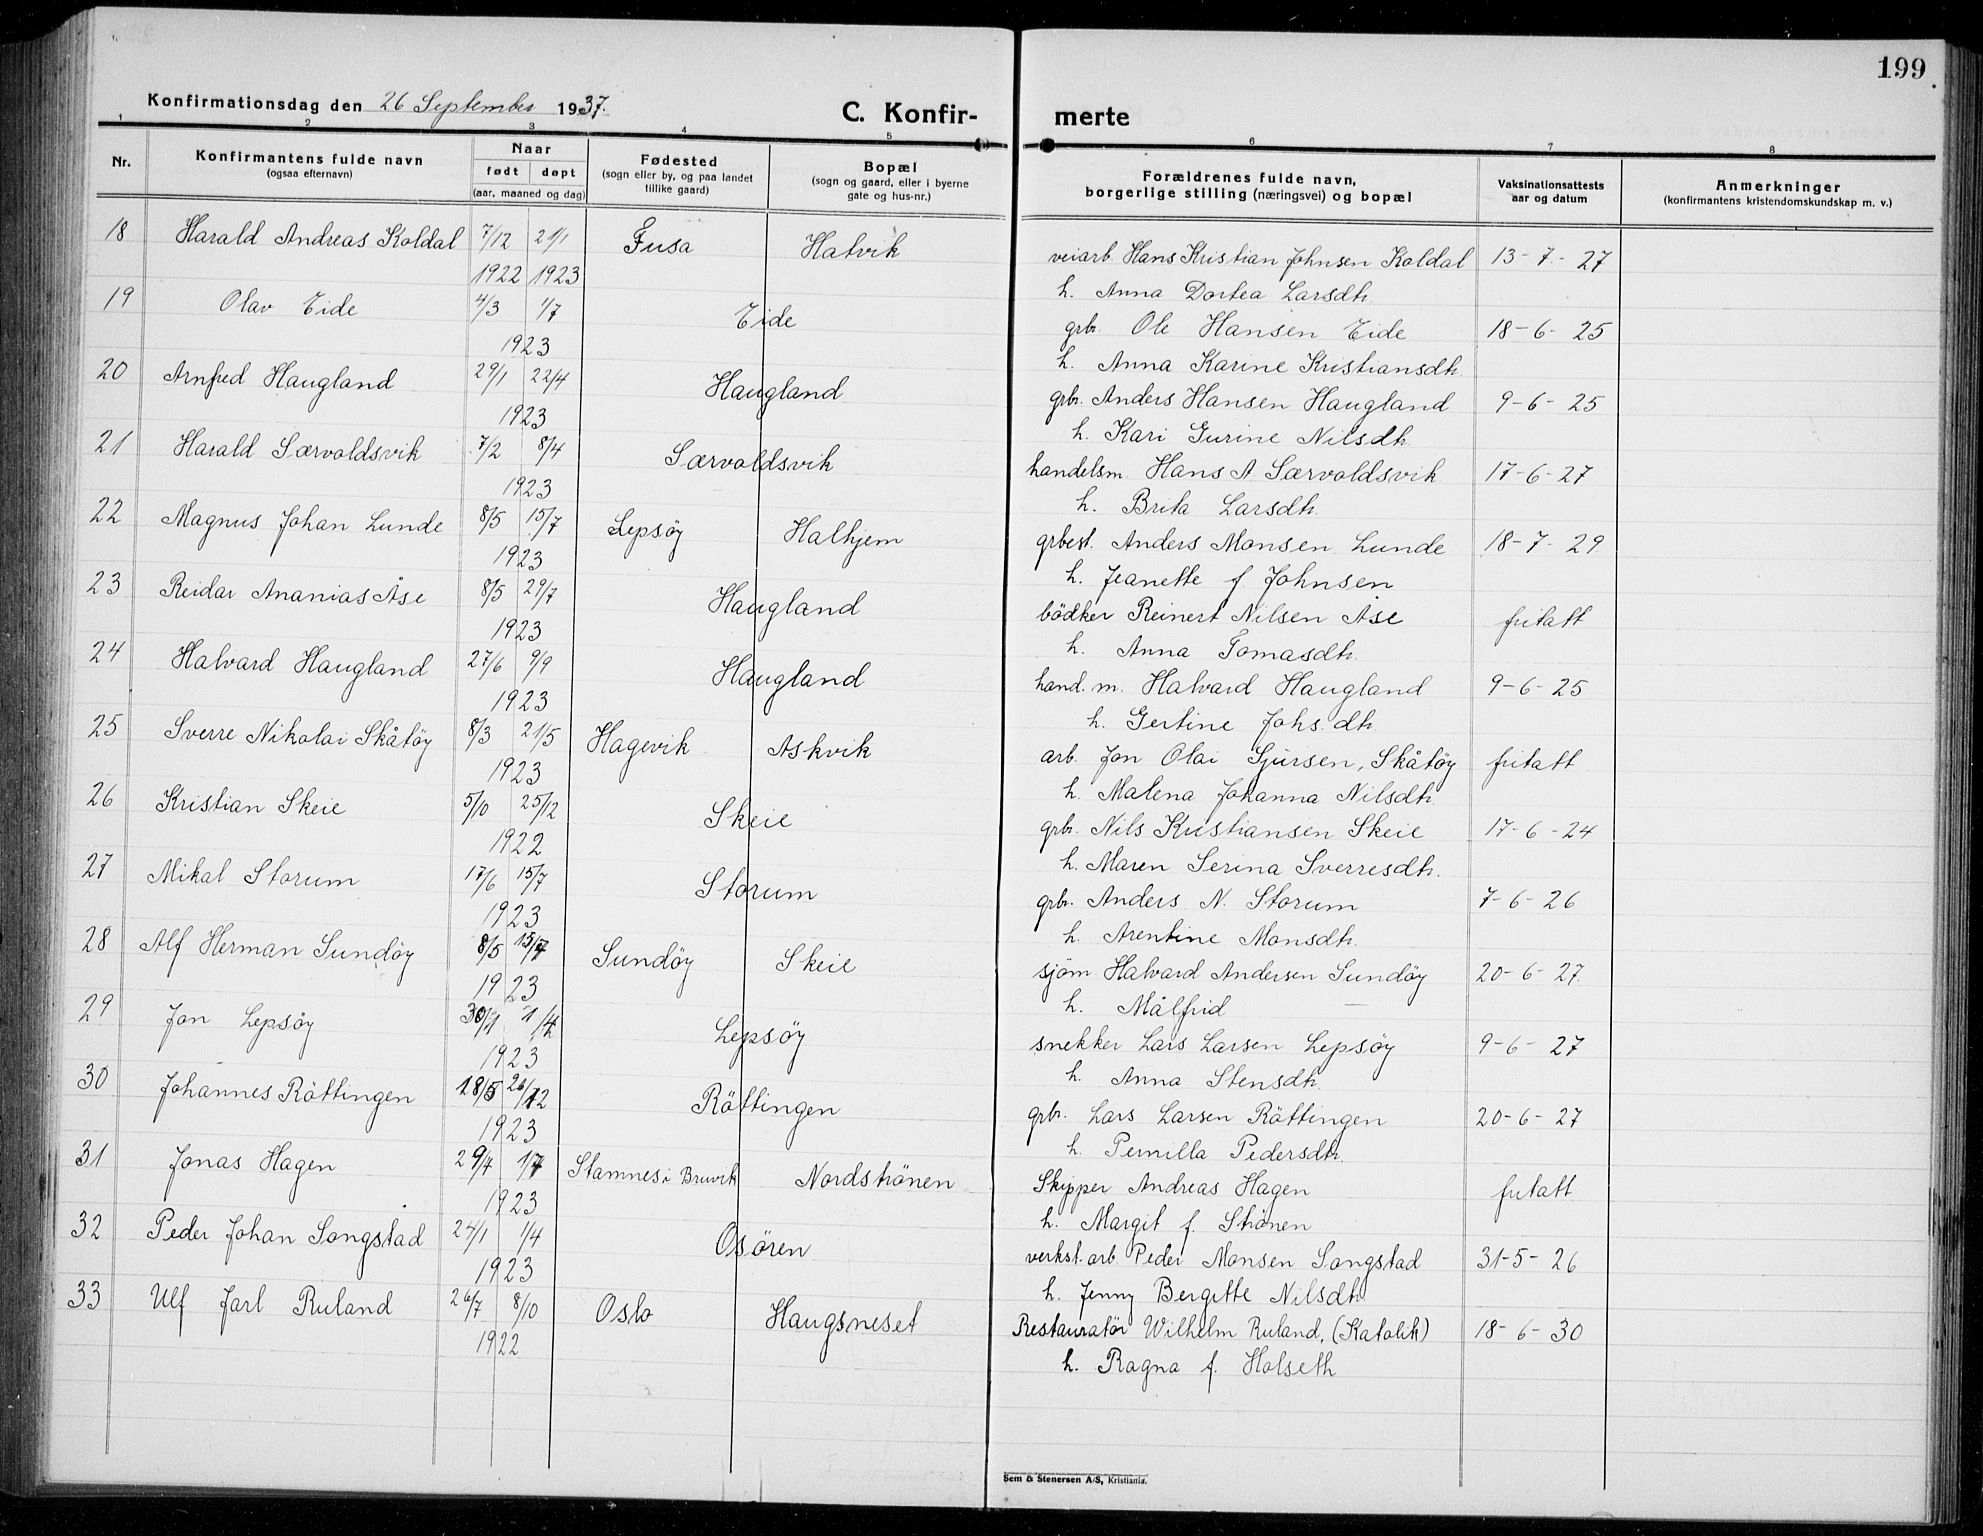 199
Konfirmationsdag den 26 September 1937.
C. Konfir- merte
1 2 3 4 5 6 7 8
Nr. Konfirmantens fulde navn (ogsaa efternavn) Naar født døpt (aar, maaned og dag) Fødested (sogn eller by, og paa landet tillike gaard) Bopæl (sogn og gaard, eller i byerne gate og hus-nr.) Forældrenes fulde navn, borgerlige stilling (næringsvei) og bopæl Vaksinationsattests aar og datum Anmerkninger (konfirmantens kristendomskundskap m. v.)
18 Harald Andreas Koldal 7/12 21/1 Fusa Hatvik veiarb. Hans Kristian Johnsen Koldal 13-7-27
1922 1923 h. Anna Dortea Larsdtr.
19 Olav Eide 4/3 1/7 Eide grbr. Ole Hansen Eide 18-6-25
1923 h. Anna Karine Kristiansdtr.
20 Arnfred Haugland 29/1 22/4 Haugland grbr. Anders Hansen Haugland 9-6-25
1923 h. Kari Gurine Nilsdtr.
21 Harald Særvoldsvik 7/2 8/4 Særvoldsvik handelsm. Hans A. Særvoldsvik 17-6-27
1923 h. Brita Larsdtr.
22 Magnus Johan Lunde 8/5 15/7 Lepsöy Halhjem grbest. Anders Monsen Lunde 18-7-29
1923 h. Jeanette f. Johnsen
23 Reidar Ananias Åse 8/5 29/7 Haugland bödker Reinert Nilsen Åse fritatt
1923 h. Anna Tomasdtr.
24 Halvard Haugland 27/6 9/9 Haugland hand.m. Halvard Haugland 9-6-25
1923 h. Gertine Johs.dtr.
25 Sverre Nikolai Skåtöy 8/3 21/5 Hagevik Askvik arb. Jon Olai Sjursen, Skåtöy fritatt
1923 h. Malena Johanna Nilsdtr.
26 Kristian Skeie 5/10 25/12 Skeie grbr. Nils Kristiansen Skeie 17-6-24
1922 h. Maren Serina Sverresdtr.
27 Mikal Storum 17/6 15/7 Storum grbr. Anders N. Storum 7-6-26
1923 h. Arentine Monsdtr.
28 Alf Herman Sundöy 8/5 15/7 Sundöy Skeie sjöm. Halvard Andersen Sundöy 20-6-27.
1923 h. Målfrid —
29 Jon Lepsöy 30/1 1/4 Lepsöy snekker Lars Larsen Lepsöy 9-6-27
1923 h. Anna Stensdtr.
30 Johannes Röttingen 18/5 26/12 Röttingen grbr. Lars Larsen Röttingen 20-6-27
1923 h. Pernilla Pedersdtr.
31 Jonas Hagen 29/4 1/7 Stamnes i Bruvik Nordströnen Skipper Andreas Hagen fritatt
1923 h. Margit f. Strönen
32 Peder Johan Songstad 24/1 1/4 Osören verkst.arb. Peder Monsen Songstad 31-5-26
1923 h. Jenny Bergitte Nilsdtr.
33 Ulf Jarl Ruland 26/7 8/10 Oslo Haugsneset Restauratör Wilhelm Ruland, (Katolik) 18-6-30
1922 h. Ragna f. Holseth
Sem & Stenersen A/S, Kristiania.